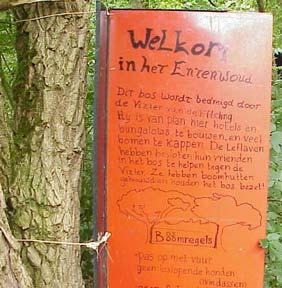 Welkom
in het Entenwoud
Dit bos wordt bedreigd door
de Vizier van de Efteling
Hij is van plan hier hotels en
bungalows te bouwen, en veel
bomen te kappen. De Leflaven
hebben besloten hun vrienden
in het bos te helpen tegen de
Vizier. Ze hebben boomhutten
gebouwd en houden het bos bezet!
Boomregels
-pas op met vuur
geen loslopende honden
ivm dassem